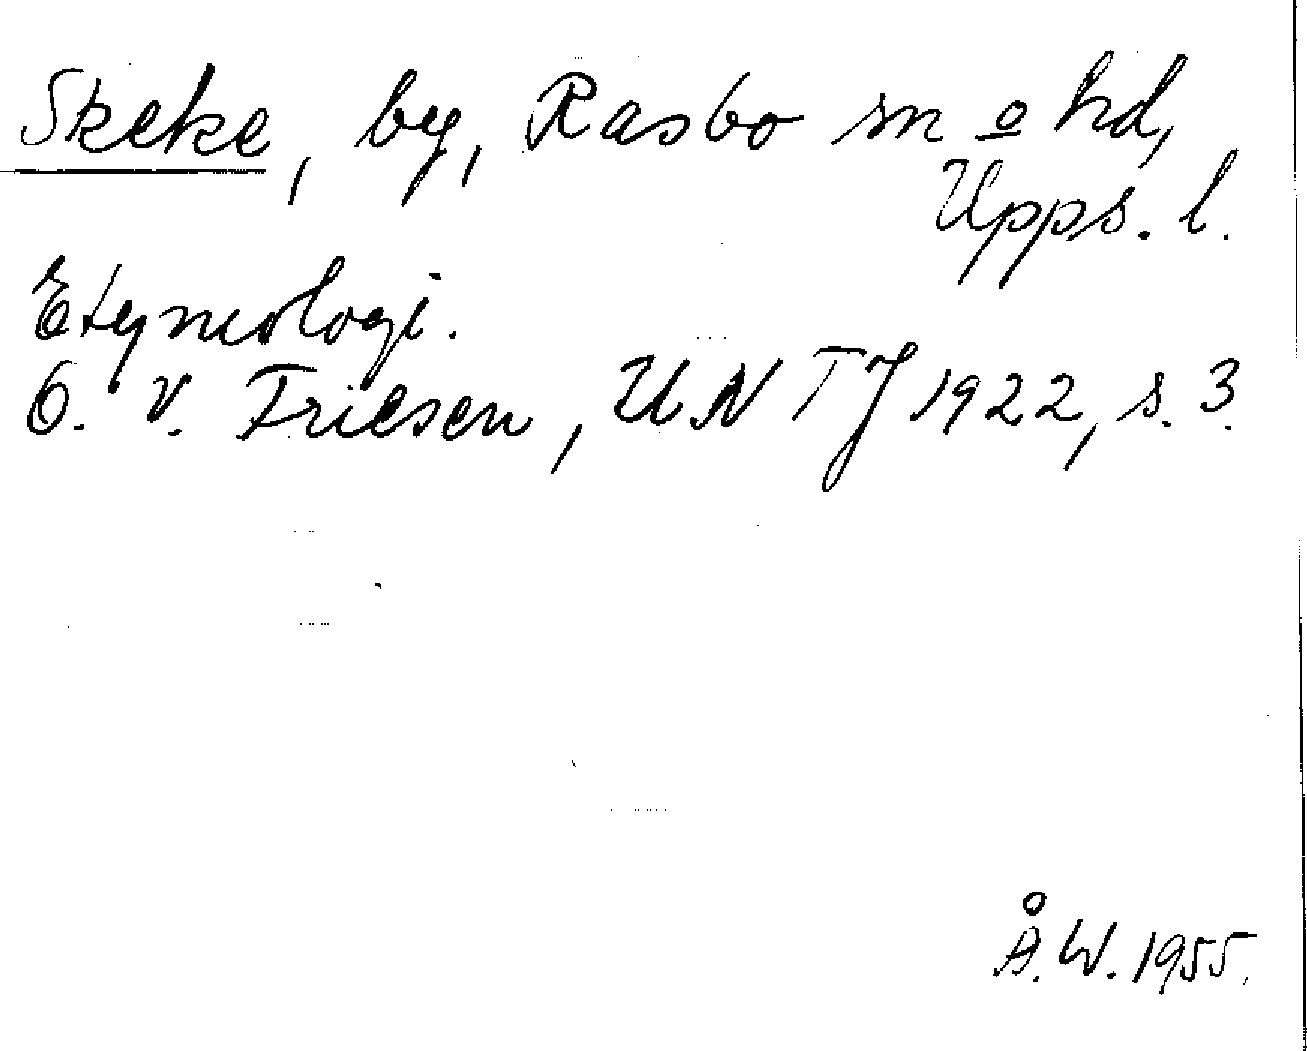 Skeke, by, Rasbo sn o hd,
Upps. l.
Etymologi.
O. v. Friesen, UNTJ 1922, s. 3.
Å. W. 1955.